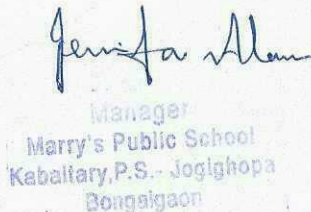 Manager
Marry's Public School
Kabaitary,P.S.- Jogighopa
Bongaigaon